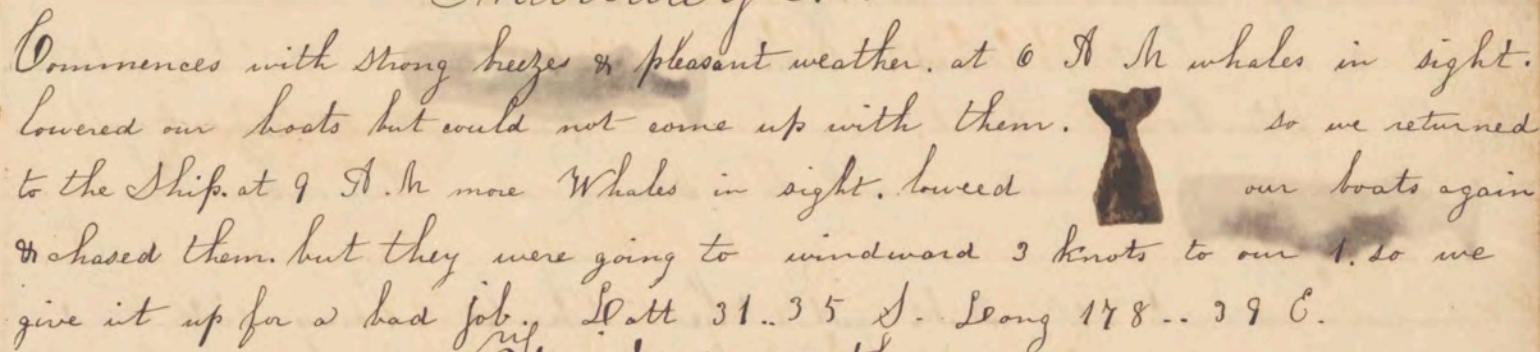 Commences with strong heezes & pleasant weather. at 6 A M whales in sight.
lowered our boats but could not come up with them. so we returned
to the Ship. at 9 A. M more Whales in sight. loweed our boats again
& chased them. but they were going to windward 3 knots to our 1. so we
give it up for a bad job. Latt 31..35 S. Long 178..39 E.